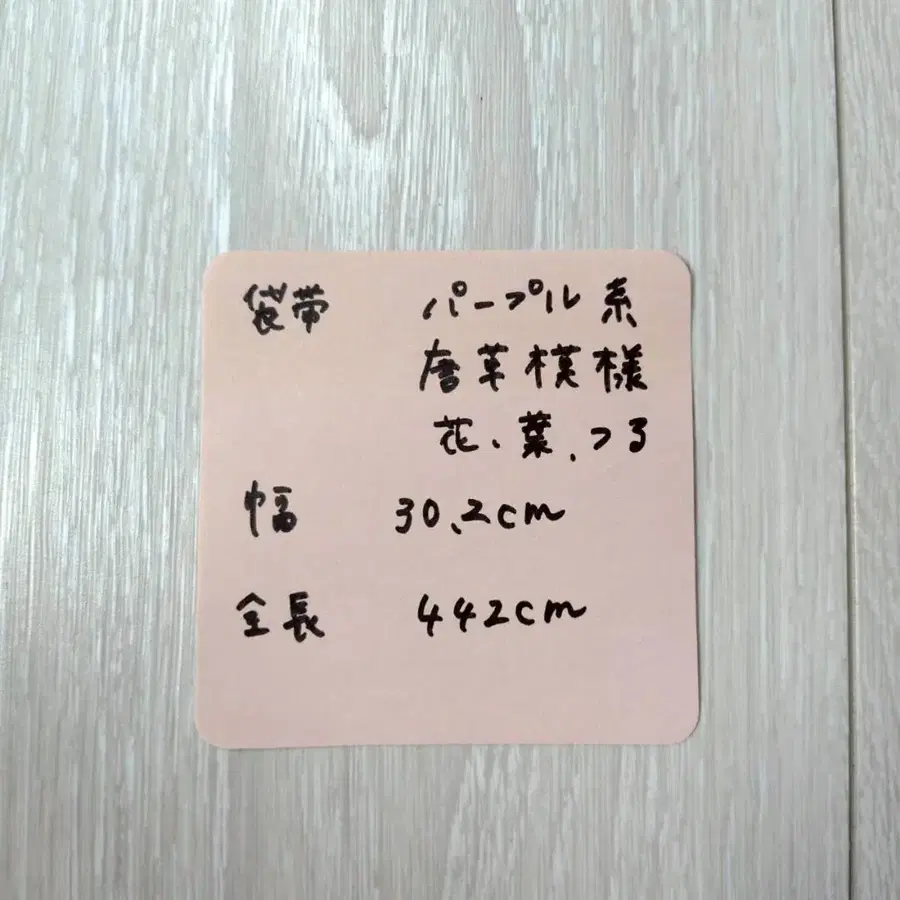 袋帯 パープル系
唐草模様
花、葉、つる
幅 30.2cm
全長 442cm